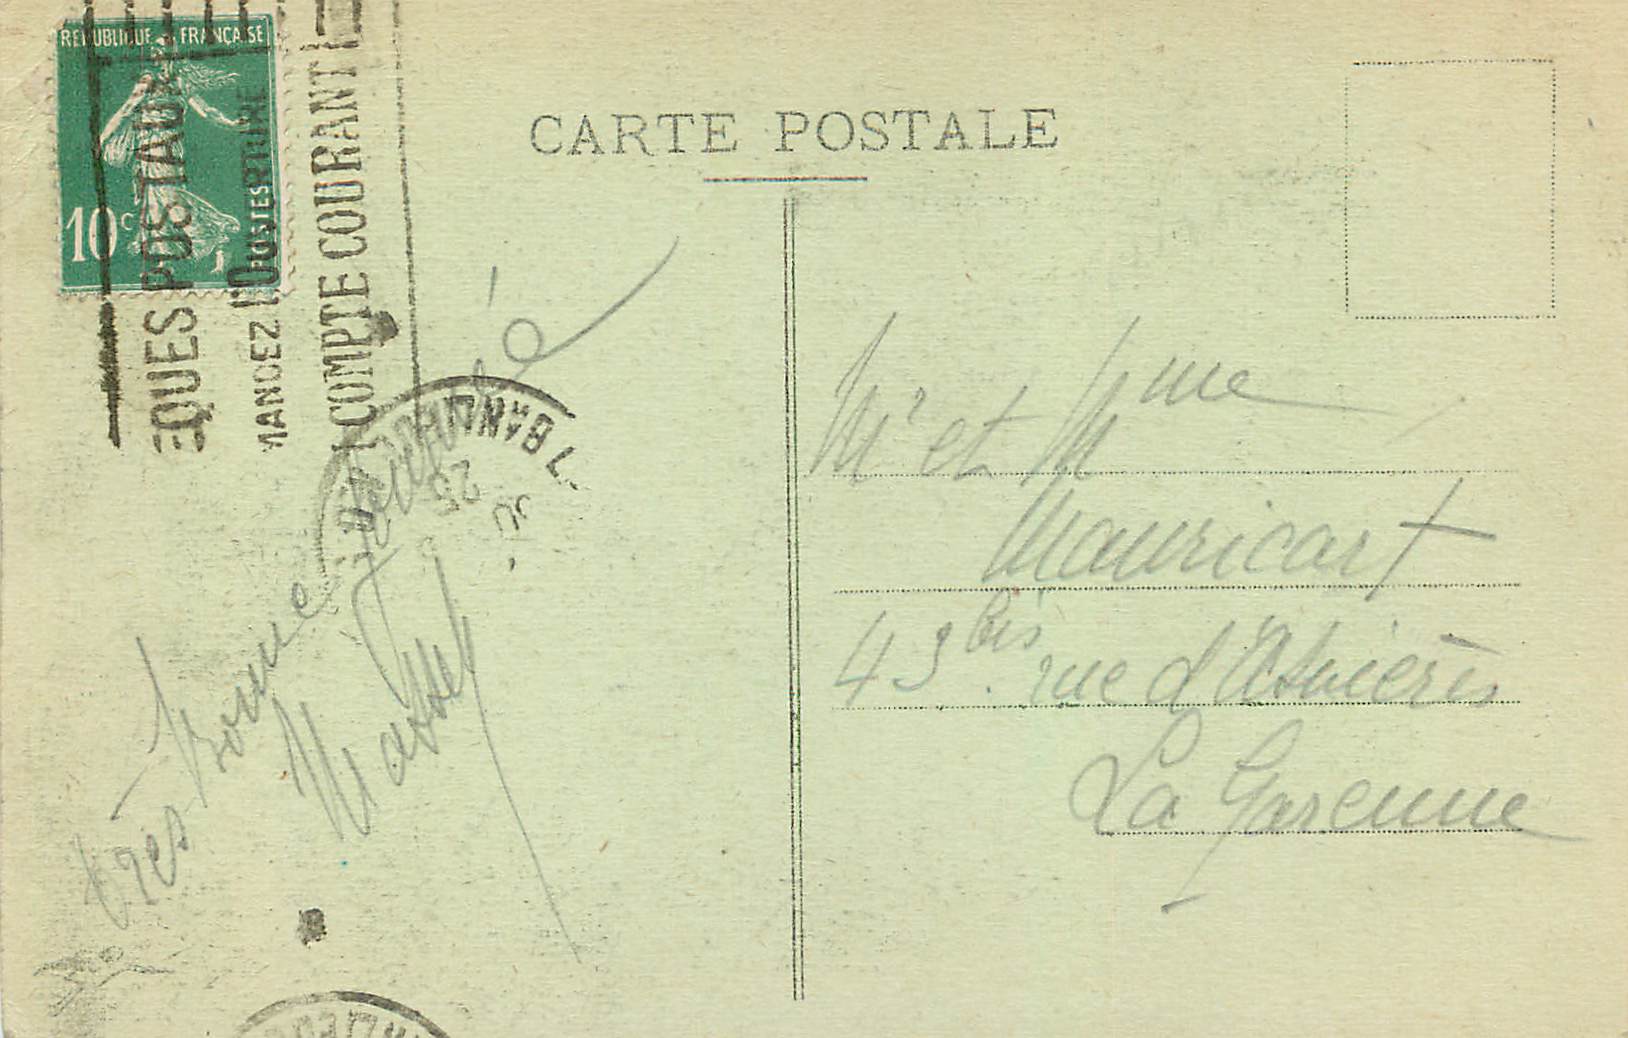 RÉPUBLIQUE FRANÇAISE
10c
POSTES
EQUES POSTAUX
MANDEZ L'OUVERTURE
COMPTE COURANT
CARTE POSTALE
Très Bonne journée
Massel
Mr et Mme
Mauricart
43 bis. rue d'Asnières
La Garenne
BANL
25